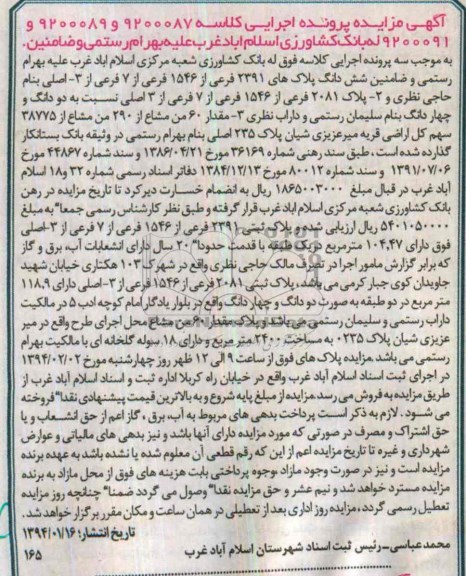 آگهی مزایده پرونده اجرایی کلاسه ۹۲۰۰۰۸۷ و ۹۲۰۰۰۸۹ و
۹۲۰۰۰۹۱ له بانک کشاورزی اسلام اباد غرب علیه بهرام رستمی و ضامنین.
به موجب سه پرونده اجرایی کلاسه فوق له بانک کشاورزی شعبه مرکزی اسلام اباد غرب علیه بهرام
رستمی و ضامنین شش دانگ پلاک های ۲۳۹۱ فرعی از ۱۵۴۶ فرعی از ۷ فرعی از ۳- اصلی بنام
حاجی نظری و ۲- پلاک ۲۰۸۱ فرعی از ۱۵۴۶ فرعی از ۷ فرعی از ۳ اصلی نسبت به دو دانگ و
چهار دانگ بنام سلیمان رستمی و داراب نظری ۳- مقدار ۶۰ من مشاع از ۲۹۰ من مشاع از ۳۸۷۷۵
سهم کل اراضی قریه میرعزیزی شیان پلاک ۲۳۵ اصلی بنام بهرام رستمی در وثیقه بانک بستانکار
گذارده شده است، طبق سند رهنی شماره ۳۶۱۶۹ مورخ ۱۳۸۶/۰۴/۲۱ و سند شماره ۴۴۸۶۷ مورخ
۱۳۹۱/۰۷/۰۶ و سند شماره ۸۰۰۱۲ مورخ ۱۳۸۴/۱۲/۱۳ دفاتر اسناد رسمی شماره ۳۲ و ۱۸ اسلام
آباد غرب در قبال مبلغ ۱۸۶۵۰۰۳۰۰۰ ریال به انضمام خسارت دیرکرد تا تاریخ مزایده در رهن
بانک کشاورزی شعبه مرکزی اسلام اباد غرب قرار گرفته و طبق نظر کارشناس رسمی جمعا" به مبلغ
۵۴۰۱۰۵۰۰۰۰ ریال ارزیابی شده و پلاک ثبتی ۲۳۹۱ فرعی از ۱۵۴۶ فرعی از ۷ فرعی از ۳-اصلی
فوق دارای ۱۰۴.۴۷ مترمربع در یک طبقه با قدمت حدودا" ۲۰ سال دارای انشعابات آب، برق و گاز
که برابر گزارش مامور اجرا در تصرف مالک حاجی نظری واقع در شهرک ۱۰۳ هکتاری خیابان شهید
جاویدان کوی جبار کرمی می باشد، پلاک ثبتی ۲۰۸۱ فرعی از ۱۵۴۶ فرعی از ۷ فرعی از ۳-اصلی دارای ۱۱۸.۹
متر مربع در دو طبقه به صورت دو دانگ و چهار دانگ واقع در بلوار یادگار امام کوچه ادب ۵ در مالکیت
داراب رستمی و سلیمان رستمی می باشد و پلاک مقدار ۶۰ من مشاع محل اجرای طرح واقع در میر
عزیزی شیان پلاک ۰۲۳۵ به مساحت ۲۴۰۰ متر مربع و دارای ۱۸ سوله گلخانه ای با مالکیت بهرام
رستمی می باشد .مزایده پلاک های فوق از ساعت ۹ الی ۱۲ ظهر روز چهارشنبه مورخ ۱۳۹۴/۰۲/۰۲
در اجرای ثبت اسناد اسلام آباد غرب واقع در خیابان راه کربلا اداره ثبت و اسناد اسلام آباد غرب از
طریق مزایده به فروش می رسد.مزایده از مبلغ پایه شروع و به بالاترین قیمت پیشنهادی نقدا" فروخته
می شود . لازم به ذکر است پرداخت بدهی های مربوط به آب، برق ، گاز اعم از حق انشعاب و یا
حق اشتراک و مصرف در صورتی که مورد مزایده دارای آنها باشد و نیز بدهی های مالیاتی و عوارض
شهرداری و غیره تا تاریخ مزایده اعم از این که رقم قطعی آن معلوم شده یا نشده باشد به عهده برنده
مزایده است و نیز در صورت وجود مازاد ،وجوه پرداختی بابت هزینه های فوق از محل مازاد به برنده
مزایده مسترد خواهد شد و نیم عشر و حق مزایده نقدا" وصول می گردد ضمنا" چنانچه روز مزایده
تعطیل رسمی گردد ، مزایده روز اداری بعد از تعطیلی در همان ساعت و مکان مقرر برگزار خواهد شد.
تاریخ انتشار: ۱۳۹۴/۰۱/۱۶
محمد عباسی-رئیس ثبت اسناد شهرستان اسلام آباد غرب
۱۶۵